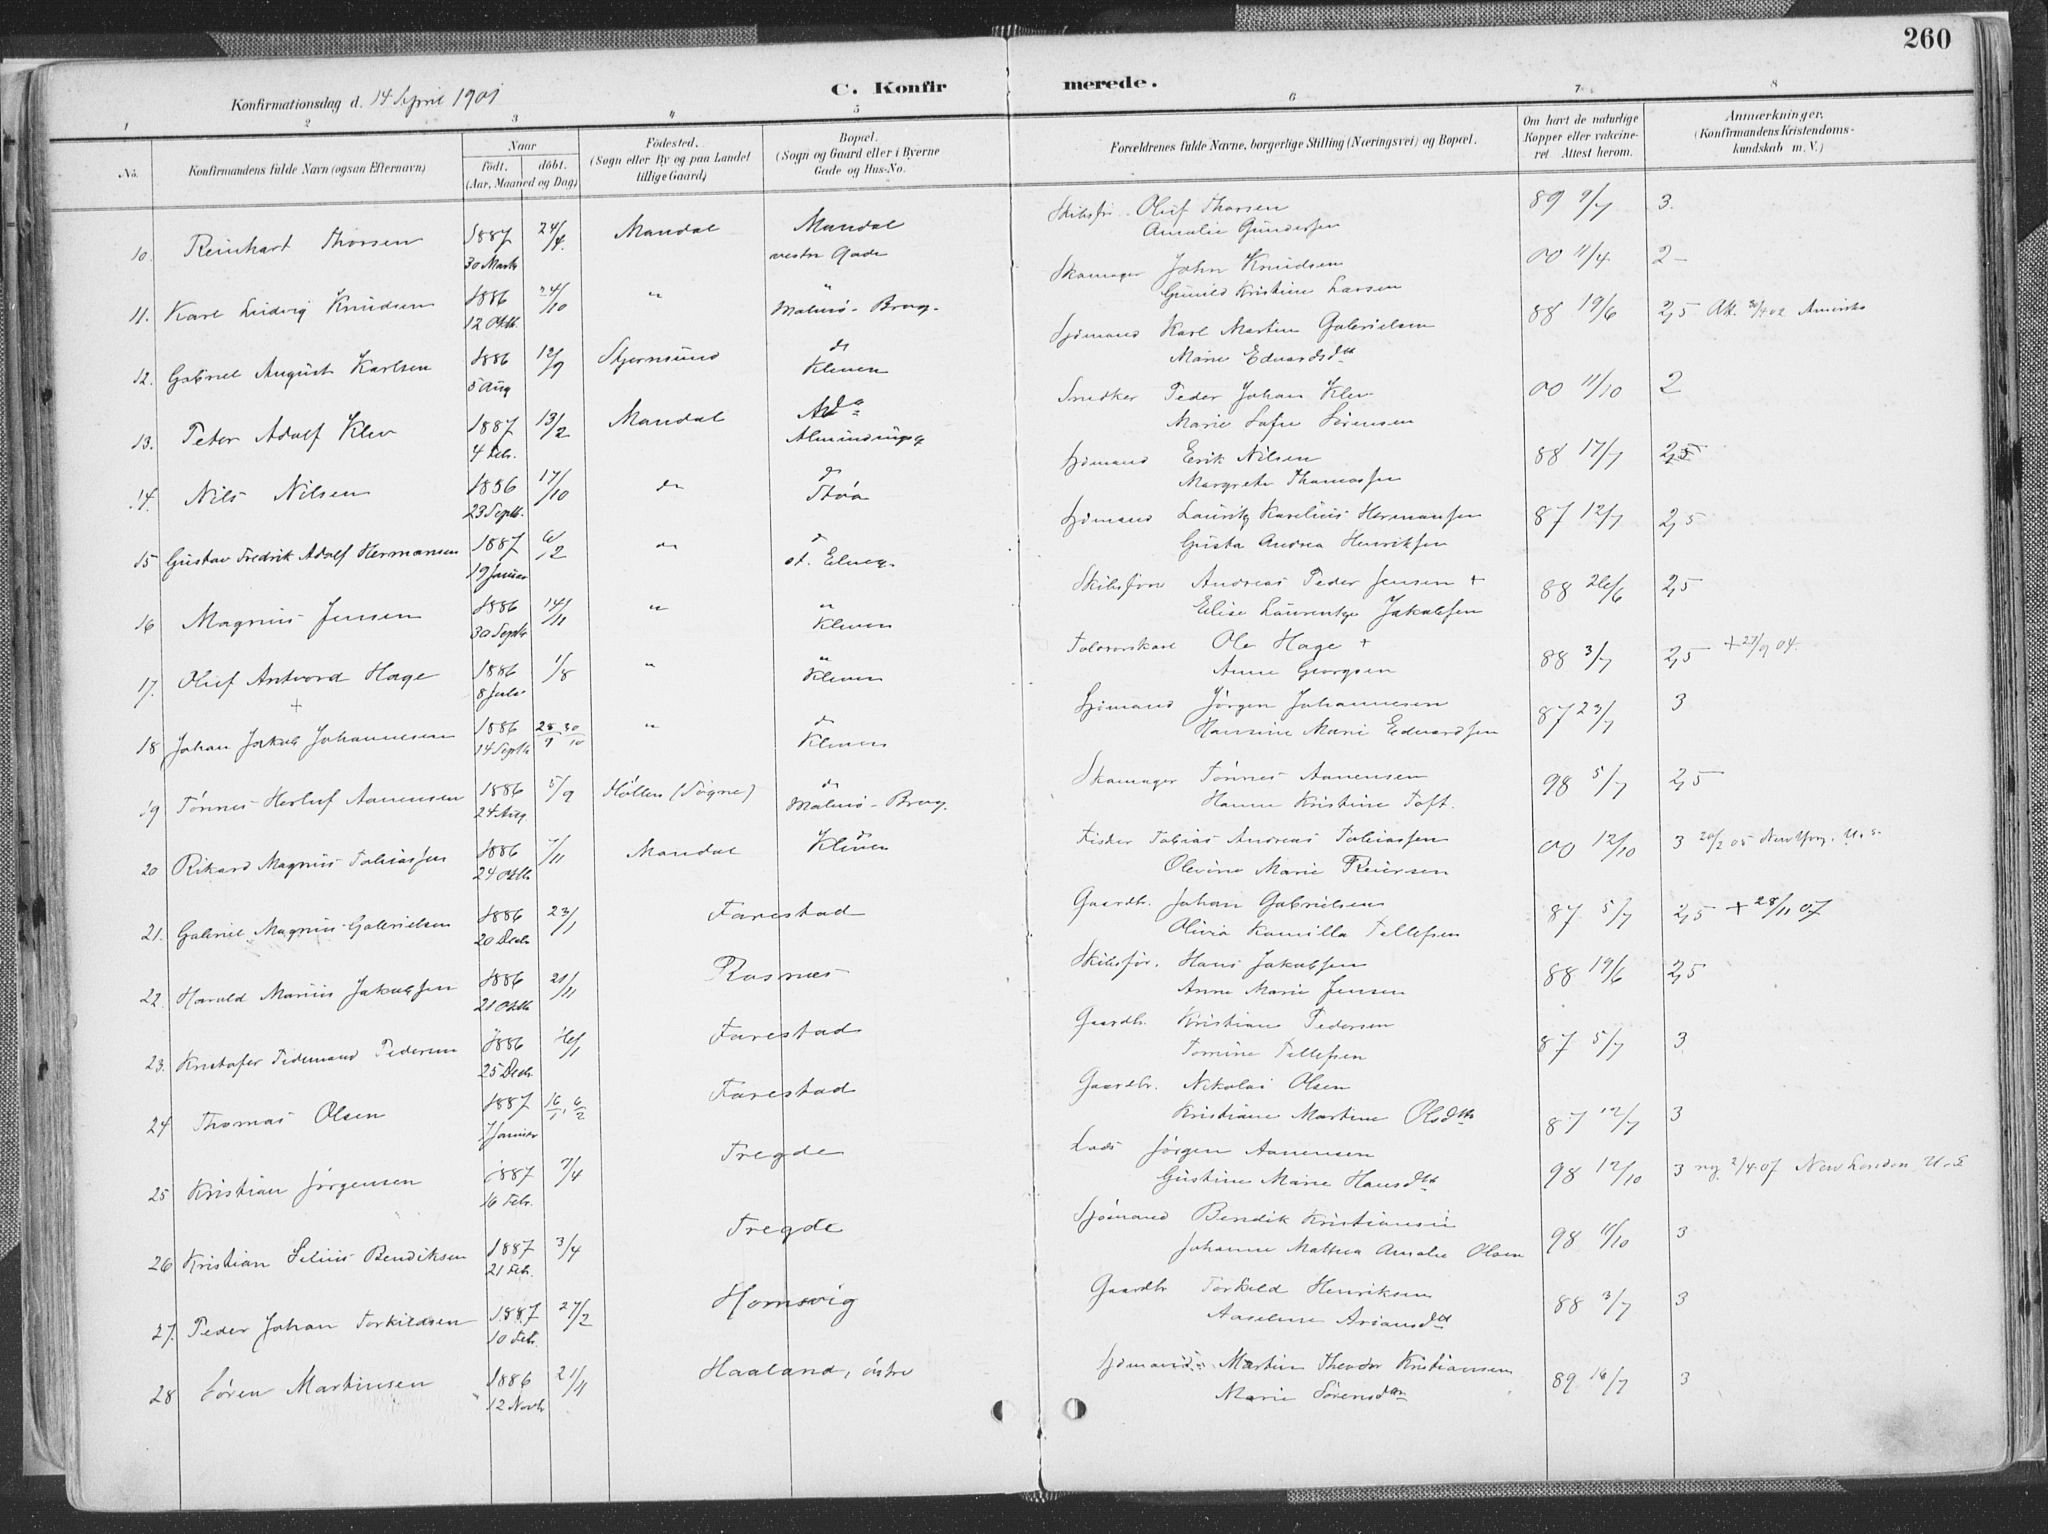 260
C. Konfirmerede.
Konfirmationsdag d. 14 April 1901
1 2 3 4 5 6 7 8
No.
Konfirmandens fulde Navn (ogsaa Efternavn)
Naar
Födt. döbt.
(Aar, Maaned og Dag)
Födested.
(Sogn eller By og paa Landet
tillige Gaard)
Bopæl.
(Sogn og Gaard eller i Byerne
Gade og Hus-No.
Forældrenes fulde Navne, borgerlige Stilling (Næringsvei) og Bopæl.
Om havt de naturlige
Kopper eller vakcine-
ret. Attest herom.
Anmærkninger.
(Konfirmandens Kristendoms-
kundskab m. V.)
10. Reinhart Thorsen 1887 30 Marts 24/4 Mandal Mandal vestre Gade Skibsfr. Oluf Thorsen Amalie Gundersen 89 9/7 3.
11. Karl Ludvig Knudsen 1886 12 Oktb. 24/10 " " Malmö-Brog. Skomager John Knudsen Gunild Kristine Larsen 00 11/4 2
12. Gabriel August Karlsen 1886 5 Aug 12/9 Stjernsund do Kleven Sjömand Karl Martin Gabrielsen Marie Edvardsdtt 88 19/6 2,5 Att. 30/4 02 Amerika
13. Peter Adolf Klev 1887 4 Feb. 13/2 Mandal do Almindingsg Snedker Peder Johan Klev Marie Sofie Sörensen 00 11/10 2
14. Nils Nilsen 1886 23 Septb. 17/10 do do Störa Sjömand Erik Nilsen Margrete Thomassen 88 17/7 2,5
15 Gustav Fredrik Adolf Hermansen 1887 19 Januar 6/2 do do st. Elveg. Sjömand Lauritz Karelius Hermansen Gusta Andrea Henriksen 87 12/7 2,5
16 Magnus Jensen 1886 30 Septb 14/11 " " Kleven Skibsförer Andreas Peder Jensen + Elise Laurentze Jakobsen 88 26/6 2,5
17. Oluf Antvord Hage + 1886 8 Juli 1/8 " " Kleven Toldoverskarl Ole Hage + Anne Georgsen 88 3/7 2,5 + 27/9 04.
18 Johan Jakob Johannesen 1886 14 Septb 28/9 30/10 " do Kleven Sjömand Jørgen Johannesen Hansine Marie Edvardsen 87 23/7 3
19 Tönnes Herluf Aanensen 1886 24 Aug 5/9 Höllen (Sögne) do Malmö-Brog. Skomager Tönnes Aanensen Hanne Kristine Toft. 98 5/7 2,5
20 Rikard Magnus Tobiassen 1886 24 Oktb 7/11 Mandal do Kleven Fisker Tobias Andreas Tobiassen Olevine Marie Reiersen 00 12/10 3 20/2 05 New York. U.S.
21. Gabriel Magnus Gabrielsen 1886 20 Decb 23/1 Farestad Gaardb. Johan Gabrielsen Olivia Kamilla Tellefsen 87 5/7 2,5 + 28/11 07
22. Harald Marius Jakobsen 1886 21 Oktb 21/11 Rosnæs Skibsför. Hans Jakobsen Anne Marie Jensen 88 19/6 2,5
23. Kristofer Tidemand Pedersen 1886 25 Decb 16/1 Farestad Gaardb. Kristian Pedersen Tomine Tellefsen 87 5/7 3
24 Thomas Olsen 1887 1 Januar 16/1, 6/2 Farestad Gaardbr. Nikolai Olsen Kristiane Martine Olsdtt 87 12/7 3
25 Kristian Jørgensen 1887 16 Febr. 7/4 Tregde Lods Jørgen Aanensen Gustine Marie Hansdtt 98 12/10 3 2/4 07 New London U.S
26 Kristian Selius Bendiksen 1887 21 Feb. 3/4 Tregde Sjömand Bendik Kristiansen Johanne Mathea Amalie Olsen 98 11/10 3
27. Peder Johan Torkildsen 1887 10 Feb. 27/2 Homsvig Gaardbr Torkild Henriksen Aaseline Ariansdtt 88 3/7 3
28 Sören Martinsen 1886 12 Novb 21/11 Haaland, östre Sjömand Martin Theodor Kristiansen Marie Sörensdtr 89 16/7 3